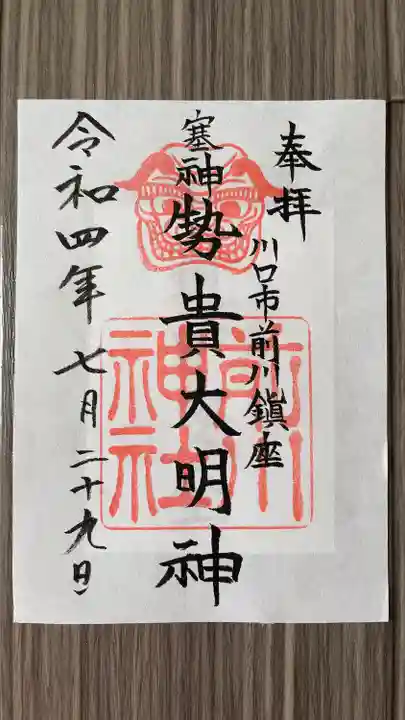 奉拝
川口市前川鎮座
塞神 勢貴大明神
前川神社
令和四年七月二十九日